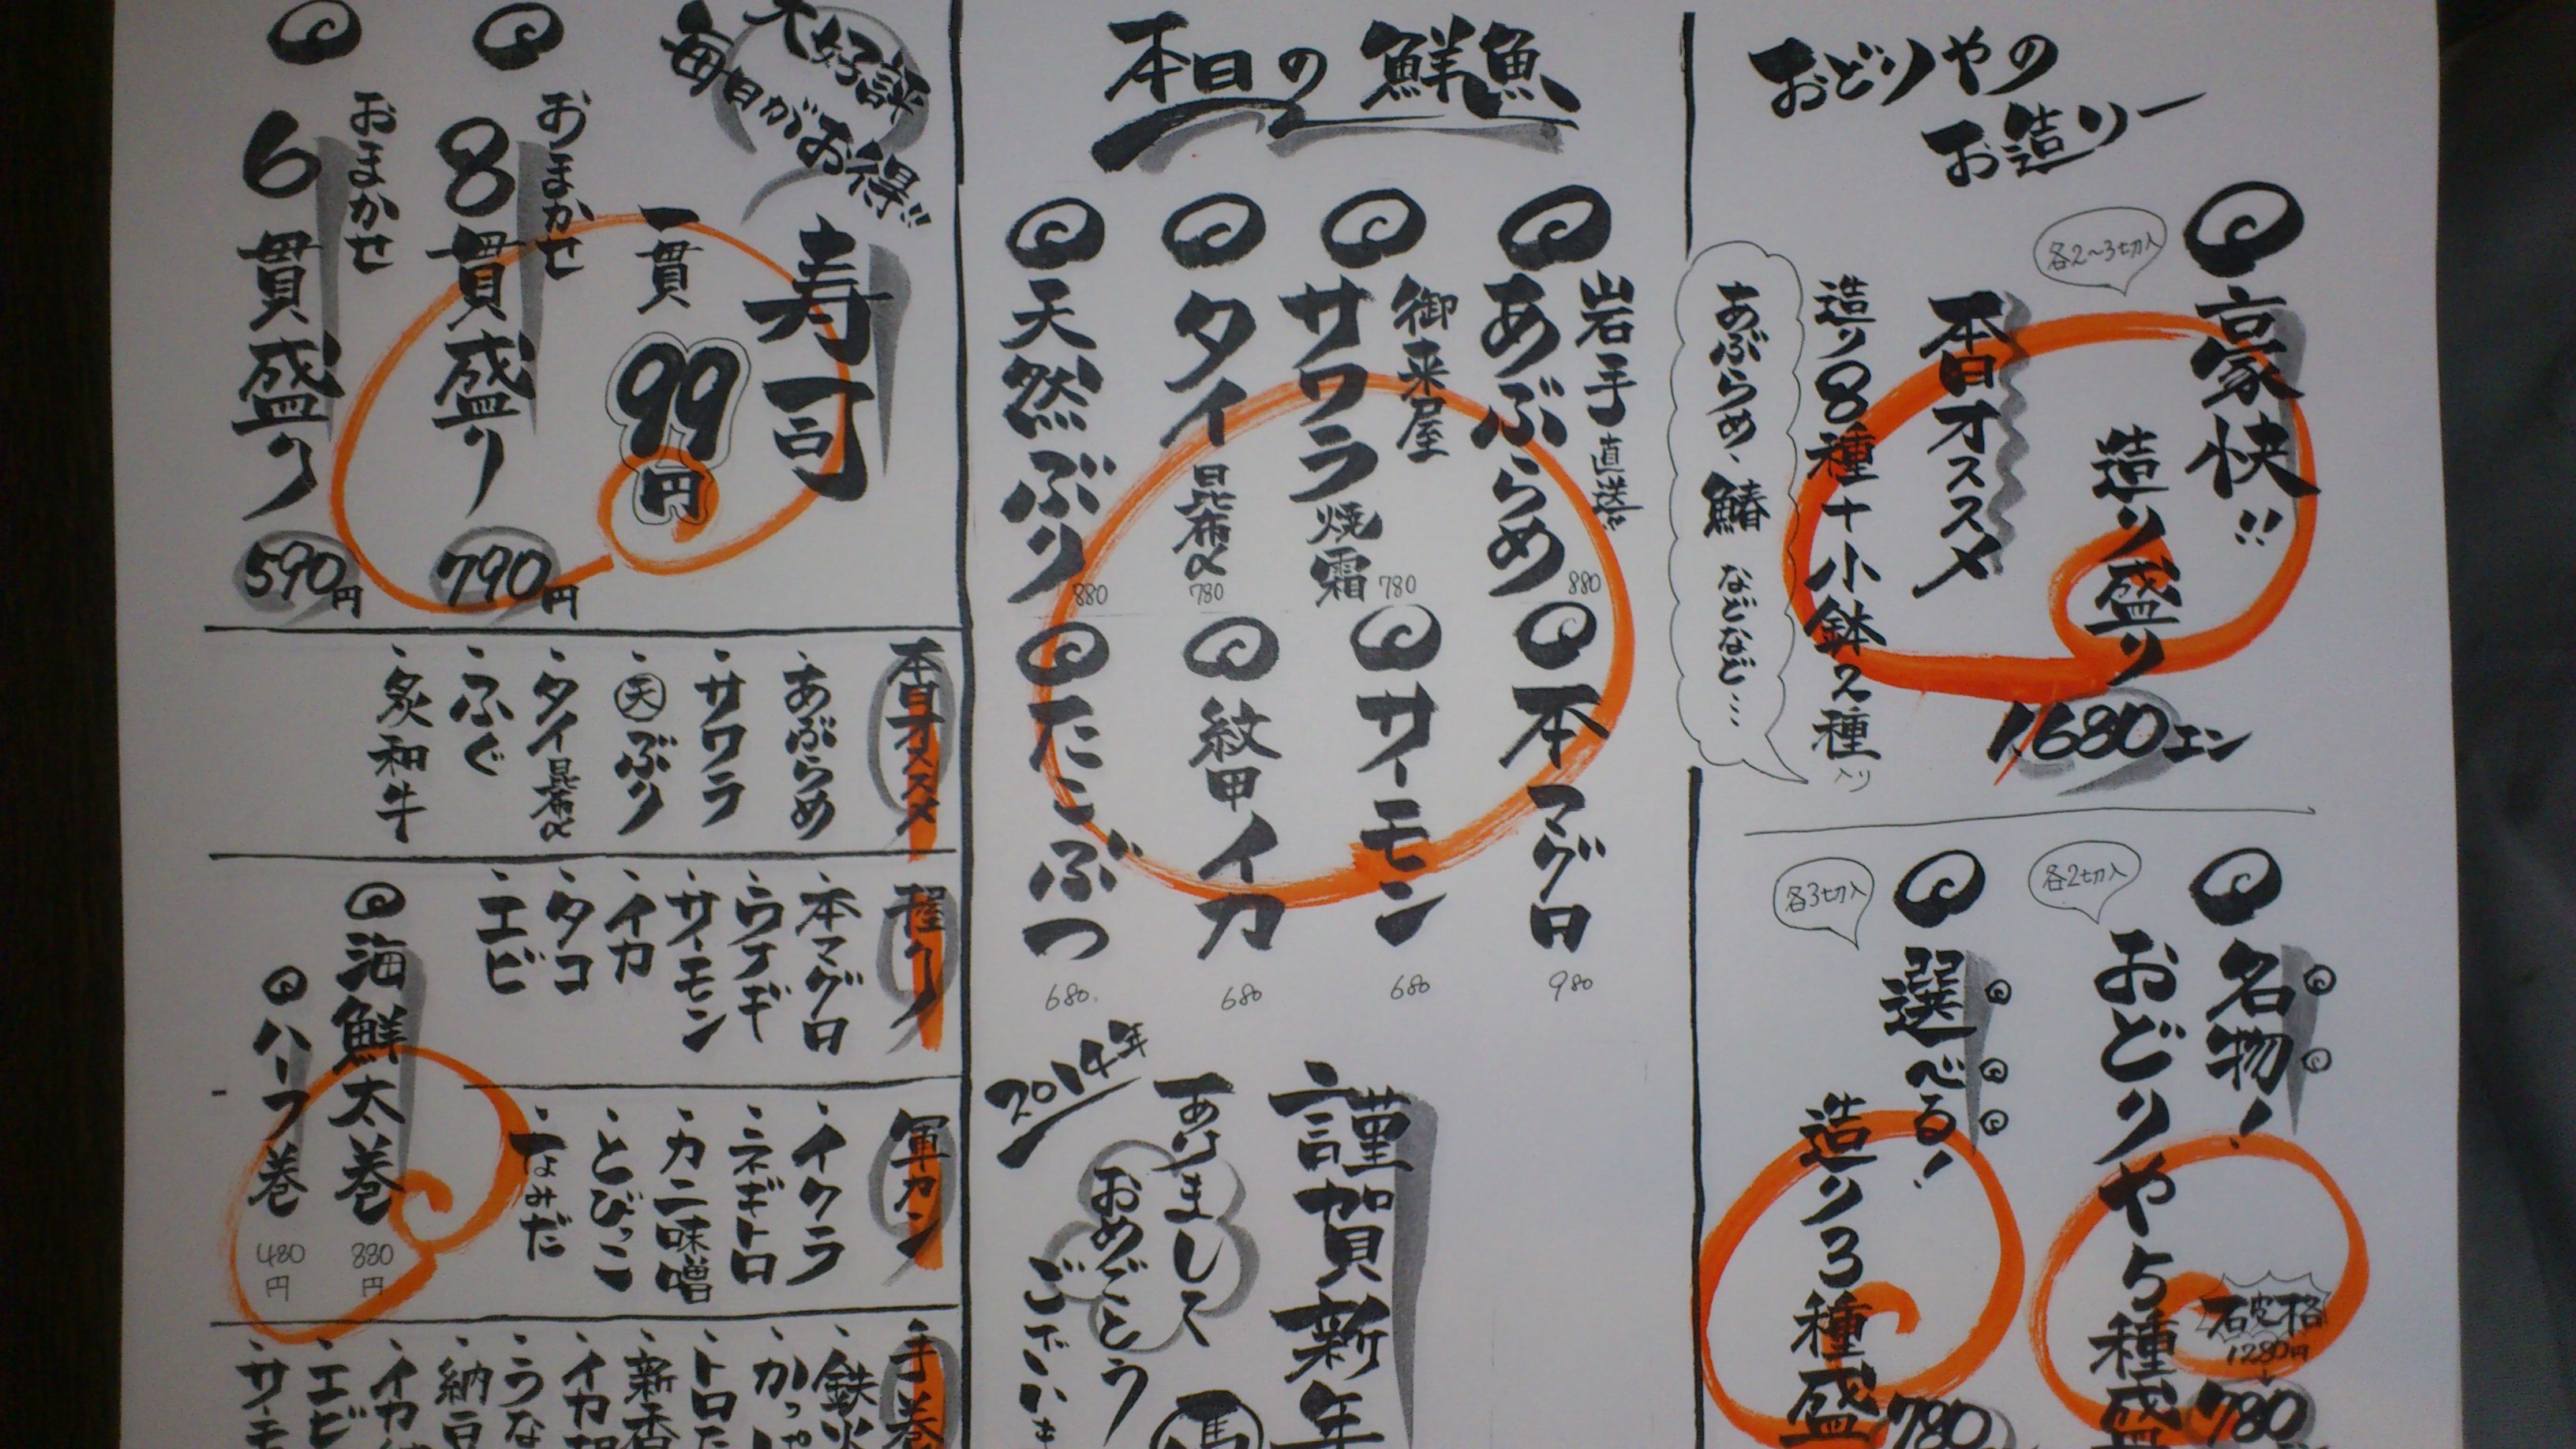 おどりやの
お造り
豪快!!
造り盛り
各2〜3切入
本日オススメ
造り8種+小鉢2種
入り
1680エン
あぶらめ、鰆などなど…
名物!
おどりや5種盛
各2切入
破格
1280円
780
選べる!
造り3種盛
各3切入
780
本日の鮮魚
岩手直送
あぶらめ
880
御来屋
サワラ焼霜
780
タイ昆布〆
780
天然ぶり
880
本マグロ
980
サーモン
680
紋甲イカ
680
たこぶつ
680
謹賀新年
あけまして
おめでとう
ございま
2014年
馬
大好評
毎日がお得!!
寿司
一貫
99円
おまかせ
8貫盛り
790円
おまかせ
6貫盛り
590円
本日オススメ
・あぶらめ
・サワラ
・天ぶり
・タイ昆布〆
・ふぐ
・炙和牛
握り
・本マグロ
・ウナギ
・サーモン
・イカ
・タコ
・エビ
軍カン
・イクラ
・ネギトロ
・カニ味噌
・とびっこ
・なみだ
海鮮太巻
880円
ハーフ巻
480円
手巻
・鉄火
・かっぱ
・トロた
・新香
・イカ
・うな
・納豆
・イカ
・エビ
・サーモ